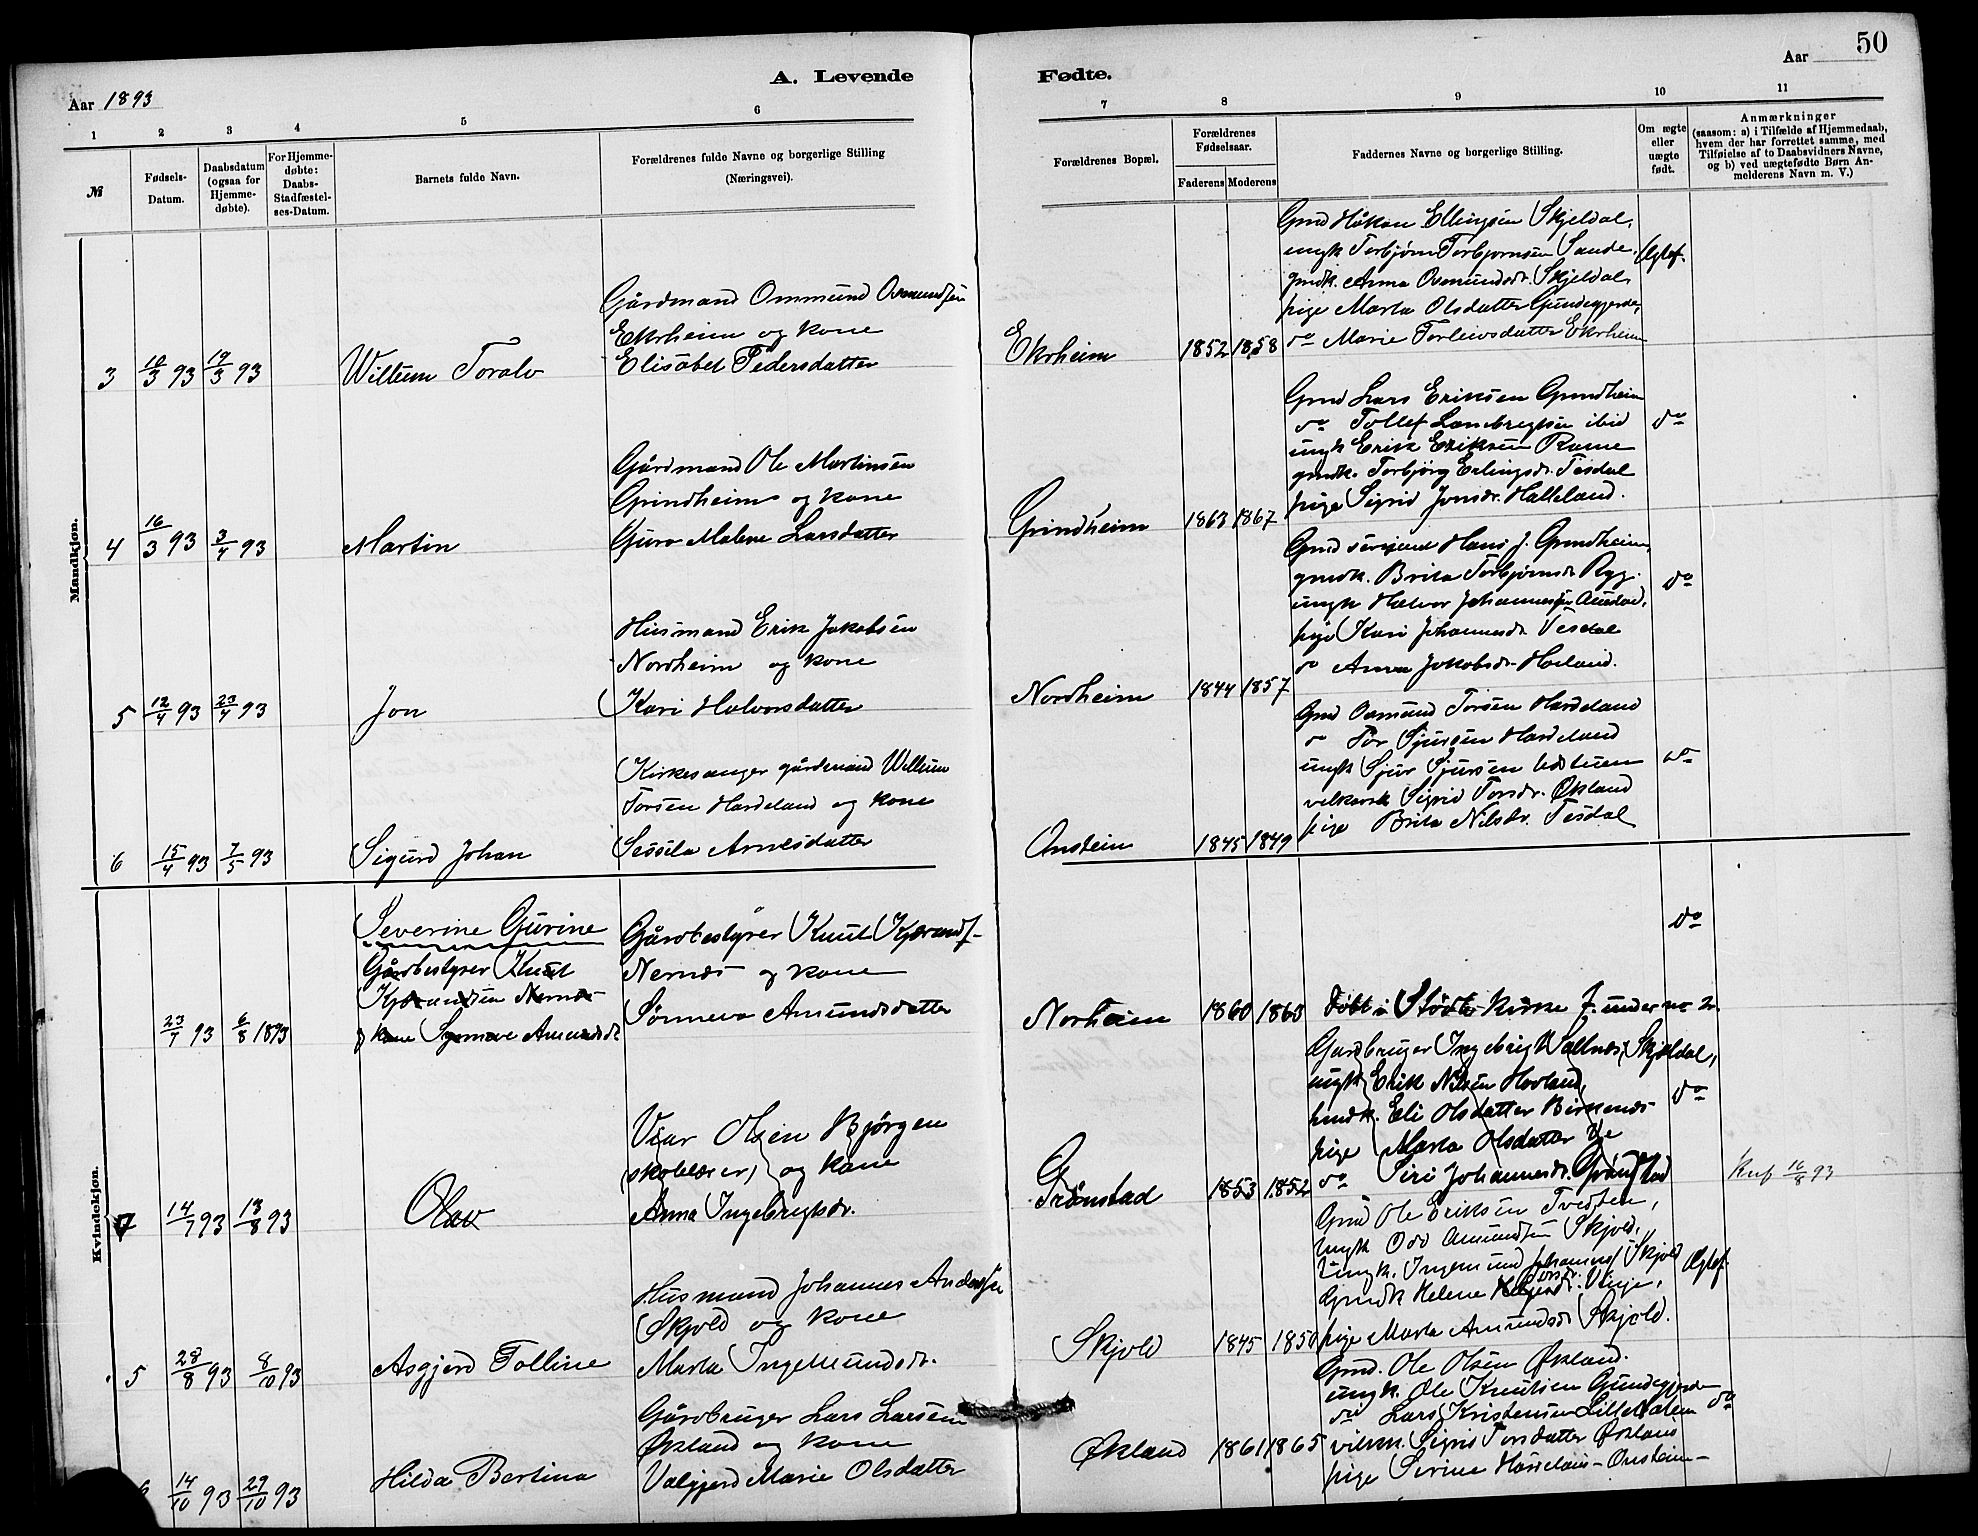 50
A. Levende Fødte.
Aar 1893
Aar
1 2 3 4 5 6 7 8 9 10 11
№
Fødsels-Datum.
Daabsdatum (ogsaa for Hjemme-døbte).
For Hjemme-døbte: Daabs-Stadfæstel-ses-Datum.
Barnets fulde Navn.
Forældrenes fulde Navne og borgerlige Stilling
(Næringsvei).
Forældrenes Bopæl.
Forældrenes Fødselsaar.
Faderens Moderens
Faddernes Navne og borgerlige Stilling
Om ægte eller uægte født.
Anmærkninger
(saasom: a) i Tilfælde af Hjemmedaab,
hvem der har forrettet samme, med
Tilføielse af to Daabsvidners Navne,
og b) ved uægtefødte Børn An-
melderens Navn m. V.)
Mandkjøn.
3 18/3 93 19/3 93
Willum Toralv
Gårdmand Ommund Osmundsen
Ekrheim og kone
Elisabet Pedersdatter
Ekrheim 1852 1858
Gmd Håkon Ellingsen Skjeldal,
ungk Torbjørn Torbjørnsen Sande.
gmdk. Anna Osmundsdr. Skjeldal,
pige Marta Olsdatter Gundegjerde,
do Marie Torleivsdatter Ekrheim
Ægtef.
4 16/3 93 3/4 93
Martin
Gårdmand Ole Martinsen
Grindheim og kone
Guro Malene Larsdatter
Grindheim 1863 1867
Gmd Lars Eriksen Grindheim
do Tollef Lambregtsen ibid
ungk Erik Eriksen Rame
gmdk. Torbjørg Erlingsdr. Tesdal
pige Sigrid Jonsdr. Halleland.
do
5 12/4 93 23/4 93
Jon
Husmand Erik Jakobsen
Nordheim og kone
Kari Halvorsdatter
Nordheim 1844 1857
Gmd sersjant Hans J. Grindheim,
gmdk. Brita Torbjørnsdr Ryg.
ungk Halvor Johannessen
pige Kari Johannesdr Tesdal
do Anna Jakobsdr. Høiland.
do
6 15/4 93 7/5 93
Sigurd Johan
Kirkesanger gårdmand Willum
Torsen Hardeland og kone
Sessela Arnesdatter
Onsteim 1845 1849
Gmd Osmund Torsen Hardeland
do Tor Sjursen Hardeland
ungk Sjur Sjursen Udstuen
vilkarsk Sigrid Torsdr. Økland
pige Brita Nilsdr. Tesdal
do
Kvindekjøn.
23/7 93 6/8 1893
Severine Gurine
Gårdbestyrer Knut
Kjærandsen Nernæs
og kone Synneve Amundsdr
Gårdbestyrer Knut Kjærandf.
Nernæs og kone
Sønneva Amundsdatter
Norheim 1860 1863
døbt i Stødle kirke f. under no 2.
do
7 14/7 93 13/8 93
Olav
Viar Olsen Bjørgen
(skolelærer) og kone
Anna Ingebregtsdr.
Grønstad 1853 1852
Gardbruger Ingebrigt Vallnæs, Skjeldal,
ungk Erik Nilsen Hovland,
hmdk. Eli Olsdatter Birkenæs
pige Marta Olsdatter
do Siri Johannesdr. Grønstad
do
Kuf 16/8 93
5 28/8 93 8/10 93
Asgjerd Tolline
Husmand Johannes Andersen
Skjold og kone
Marta Ingemundsdr.
Skjold 1845 1850
Gmd Ole Eriksen Tvedten,
Ungk Odd Amundsen Skjold.
Ungk. Ingemund Johannesf Skjold
Gmdk Helene Larsdr. Vinje,
pige Marta Amundsdr Skjold.
Ægtef.
14/10 93 29/10 93
Hilda Bertina
Gårdbruger Lars Larsen
Økland og kone
Valgjerd Marie Olsdatter
Økland 1861 1865
Gmd. Ole Olsen Økland.
ungk. Ole Knutsen Gundegjerde
do Lars Kristensen Lilledalen
vilkk. Sigrid Torsdatter Økland
pige Serina Hardeland - Onsteim -
do